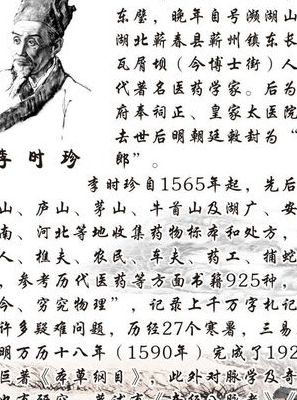 东璧，晚年自号濒湖山
湖北蕲春县蕲州镇东长
瓦屑坝（今博士街）人
代著名医药学家。后为
府奉祠正、皇家太医院
去世后明朝廷敕封为“
郎”。
李时珍
李时珍自1565年起，先后
山、庐山、茅山、牛首山及湖广、安
南、河北等地收集药物标本和处方，
人、樵夫、农民、车夫、药工、捕蛇
，参考历代医药等方面书籍925种，
今、穷究物理”，记录上千万字札记
许多疑难问题，历经27个寒暑，三易
明万历十八年（1590年）完成了192
巨著《本草纲目》，此外对脉学及奇